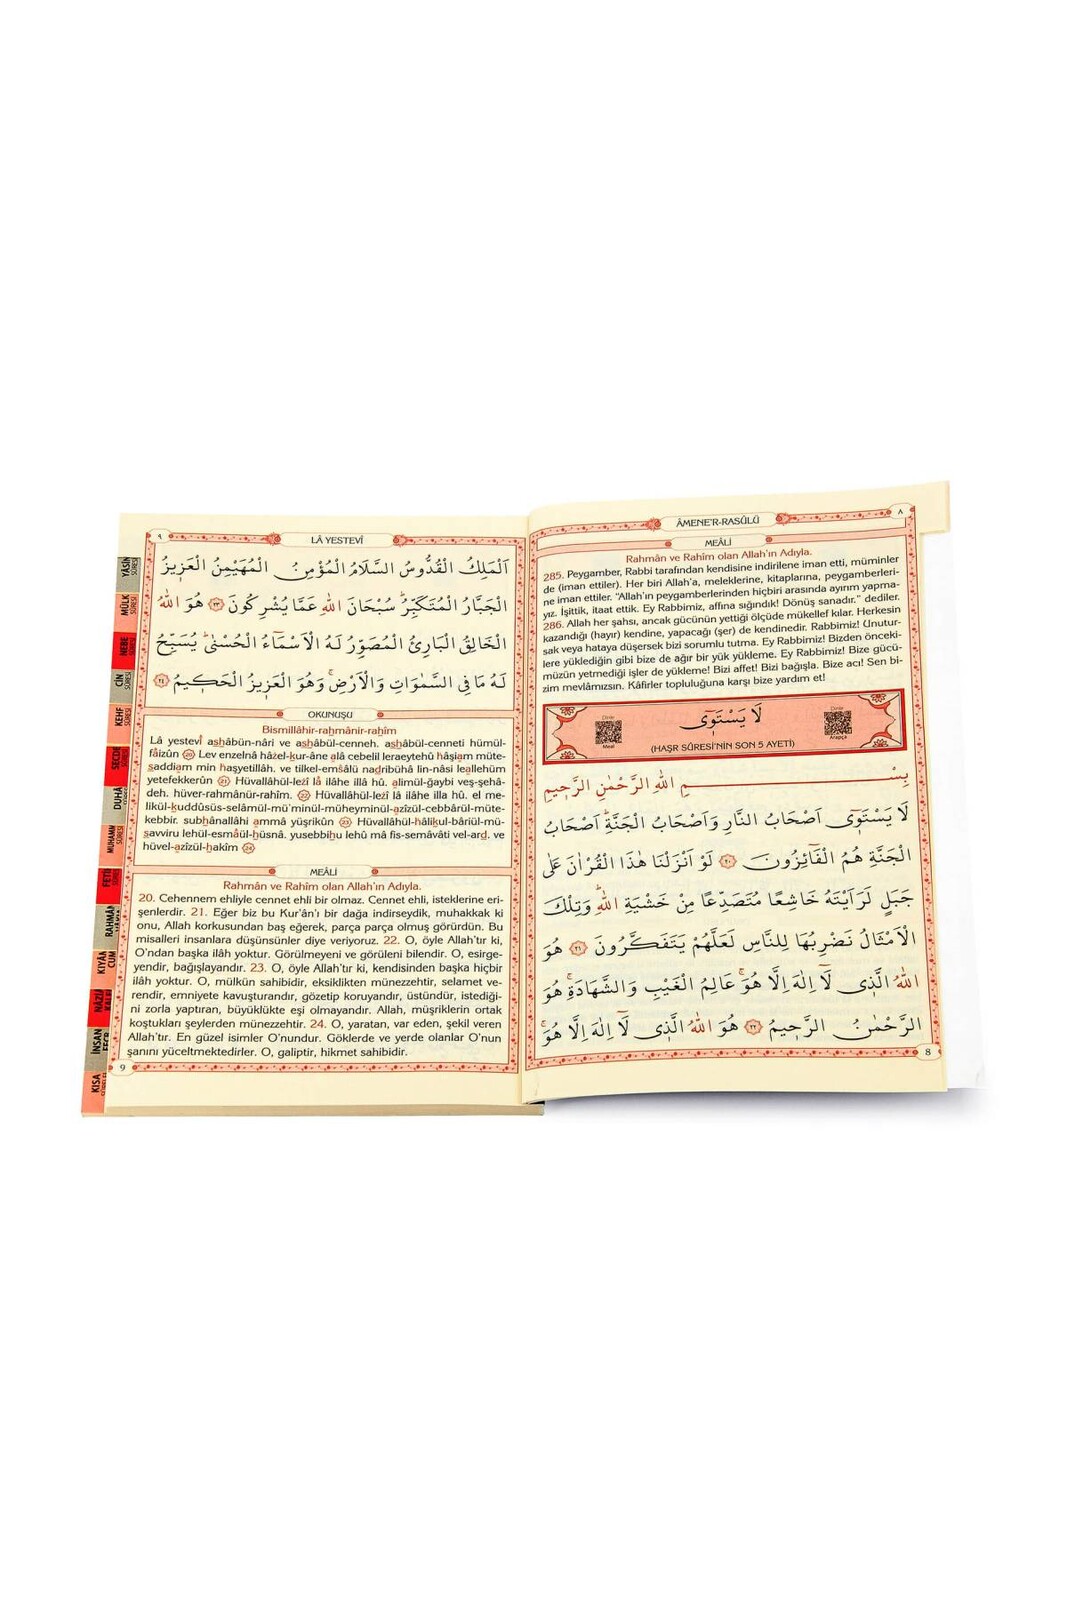 ٨
ÂMENE'R-RASÛLÜ
MEÂLİ
Rahmân ve Rahîm olan Allah'ın Adıyla.
285. Peygamber, Rabbi tarafından kendisine indirilene iman etti, müminler
de (iman ettiler). Her biri Allah'a, meleklerine, kitaplarına, peygamberleri-
ne iman ettiler. "Allah'ın peygamberlerinden hiçbiri arasında ayırım yapma-
yız. İşittik, itaat ettik. Ey Rabbimiz, affına sığındık! Dönüş sanadır." dediler.
286. Allah her şahsı, ancak gücünün yettiği ölçüde mükellef kılar. Herkesin
kazandığı (hayır) kendine, yapacağı (şer) de kendinedir. Rabbimiz! Unutur-
sak veya hataya düşersek bizi sorumlu tutma. Ey Rabbimiz! Bizden önceki-
lere yüklediğin gibi bize de ağır bir yük yükleme. Ey Rabbimiz! Bize gücü-
müzün yetmediği işler de yükleme! Bizi affet! Bizi bağışla. Bize acı! Sen bi-
zim mevlâmızsın. Kâfirler topluluğuna karşı bize yardım et!
Dinle
Meal
لَا يَسْتَوٖى
(HAŞR SÛRESİ'NİN SON 5 AYETİ)
Dinle
Arapça
بِسْــــــمِ اللهِ الرَّحْمٰنِ الرَّحٖيمِ
لَا يَسْتَوٖٓى اَصْحَابُ النَّارِ وَاَصْحَابُ الْجَنَّةِۜ اَصْحَابُ
الْجَنَّةِ هُمُ الْفَٓائِزُونَ ﴿٢٠﴾ لَوْ اَنْزَلْنَا هٰذَا الْقُرْاٰنَ عَلٰى
جَبَلٍ لَرَاَيْتَهُ خَاشِعًا مُتَصَدِّعًا مِنْ خَشْيَةِ اللهِۜ وَتِلْكَ
الْاَمْثَالُ نَضْرِبُهَا لِلنَّاسِ لَعَلَّهُمْ يَتَفَكَّرُونَ ﴿٢١﴾ هُوَ
اللهُ الَّذٖى لَٓا اِلٰهَ اِلَّا هُوَۚ عَالِمُ الْغَيْبِ وَالشَّهَادَةِۚ هُوَ
الرَّحْمٰنُ الرَّحٖيمُ ﴿٢٢﴾ هُوَ اللهُ الَّذٖى لَٓا اِلٰهَ اِلَّا هُوَۚ
8
٩
LÂ YESTEVÎ
اَلْمَلِكُ الْقُدُّوسُ السَّلَامُ الْمُؤْمِنُ الْمُهَيْمِنُ الْعَزٖيزُ
الْجَبَّارُ الْمُتَكَبِّرُۜ سُبْحَانَ اللهِ عَمَّا يُشْرِكُونَ ﴿٢٣﴾ هُوَ اللهُ
الْخَالِقُ الْبَارِئُ الْمُصَوِّرُ لَهُ الْاَسْمَٓاءُ الْحُسْنٰىۜ يُسَبِّحُ
لَهُ مَا فِى السَّمٰوَاتِ وَالْاَرْضِۚ وَهُوَ الْعَزٖيزُ الْحَكٖيمُ ﴿٢٤﴾
OKUNUŞU
Bismillâhir-rahmânir-rahîm
Lâ yestevî ashâbün-nâri ve ashâbül-cenneh. ashâbül-cenneti hümül-
fâizûn (20) Lev enzelnâ hâzel-kur-âne alâ cebelil leraeytehû hâşiam müte-
saddiam min haşyetillâh. ve tilkel-emsâlü nadribühâ lin-nâsi leallehüm
yetefekkerûn (21) Hüvallâhül-lezî lâ ilâhe illâ hû. alimül-ğaybi veş-şehâ-
deh. hüver-rahmânür-rahîm. (22) Hüvallâhül-lezî lâ ilâhe illa hû. el me-
likül-kuddûsüs-selâmül-mü'minül-müheyminül-azîzül-cebbârul-müte-
kebbir. subhânallâhi ammâ yüşrikûn (23) Hüvallâhül-hâlikul-bâriül-mü-
savviru lehül-esmâül-hüsnâ. yusebbihu lehû mâ fis-semâvâti vel-ard. ve
hüvel-azîzül-hakîm (24)
MEÂLİ
Rahmân ve Rahîm olan Allah'ın Adıyla.
20. Cehennem ehliyle cennet ehli bir olmaz. Cennet ehli, isteklerine eri-
şenlerdir. 21. Eğer biz bu Kur'ân'ı bir dağa indirseydik, muhakkak ki
onu, Allah korkusundan baş eğerek, parça parça olmuş görürdün. Bu
misalleri insanlara düşünsünler diye veriyoruz. 22. O, öyle Allah'tır ki,
O'ndan başka ilâh yoktur. Görülmeyeni ve görüleni bilendir. O, esirge-
yendir, bağışlayandır. 23. O, öyle Allah'tır ki, kendisinden başka hiçbir
ilâh yoktur. O, mülkün sahibidir, eksiklikten münezzehtir, selamet ve-
rendir, emniyete kavuşturandır, gözetip koruyandır, üstündür, istediği-
ni zorla yaptıran, büyüklükte eşi olmayandır. Allah, müşriklerin ortak
koştukları şeylerden münezzehtir. 24. O, yaratan, var eden, şekil veren
Allah'tır. En güzel isimler O'nundur. Göklerde ve yerde olanlar O'nun
şanını yüceltmektedirler. O, galiptir, hikmet sahibidir.
9
YÂSÎN
SÛRESİ
MÜLK
SÛRESİ
NEBE
SÛRESİ
CİN
SÛRESİ
KEHF
SÛRESİ
SECDE
DUHÂ
MUHAMM
SÛRESİ
FETİH
RAHMÂN
KIYÂM
CUM
İNSAN
FECR
KISA